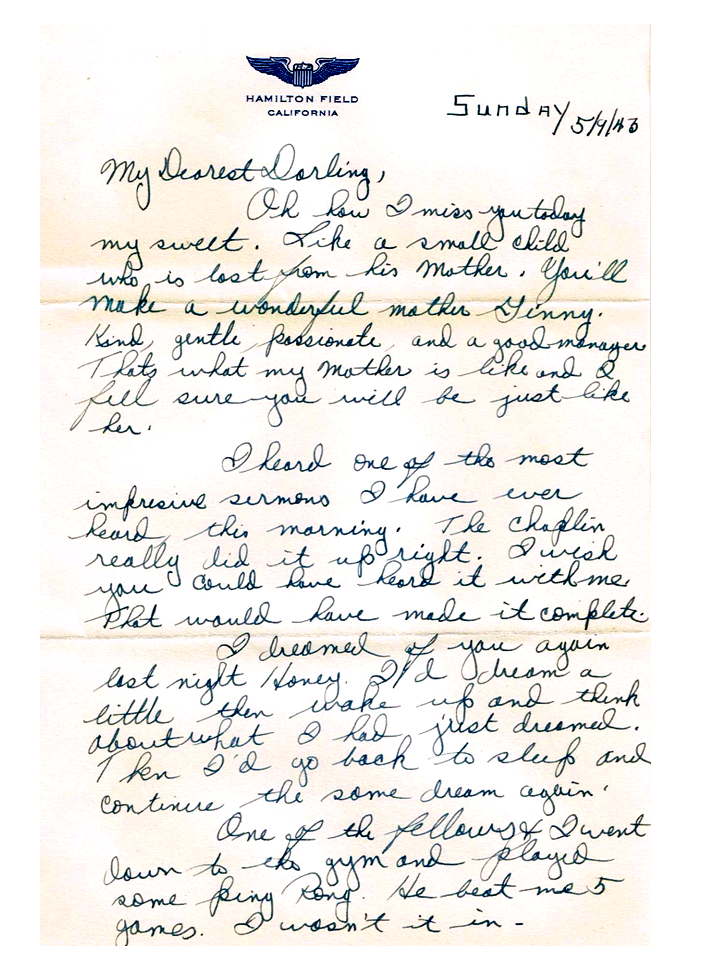 HAMILTON FIELD
CALIFORNIA
Sunday 5/9/43
My Dearest Darling,
Oh how I miss you today
my sweet. Like a small child
who is lost from his Mother. You'll
make a wonderful mother Ginny.
Kind, gentle, passionate, and a good manager
Thats what my Mother is like and I
fell sure you will be just like
her.
I heard one of the most
impresive sermons I have ever
heard, this morning. The Chaplin
really did it up right. I wish
you could have heard it with me.
That would have made it complete.
I dreamed of you again
last night Honey. I'd dream a
little then wake up and think
about what I had just dreamed.
Then I'd go back to sleep and
continue the same dream again.
One of the fellows & I went
down to the gym and played
some ping Pong. He beat me 5
games. I wasn't it in -